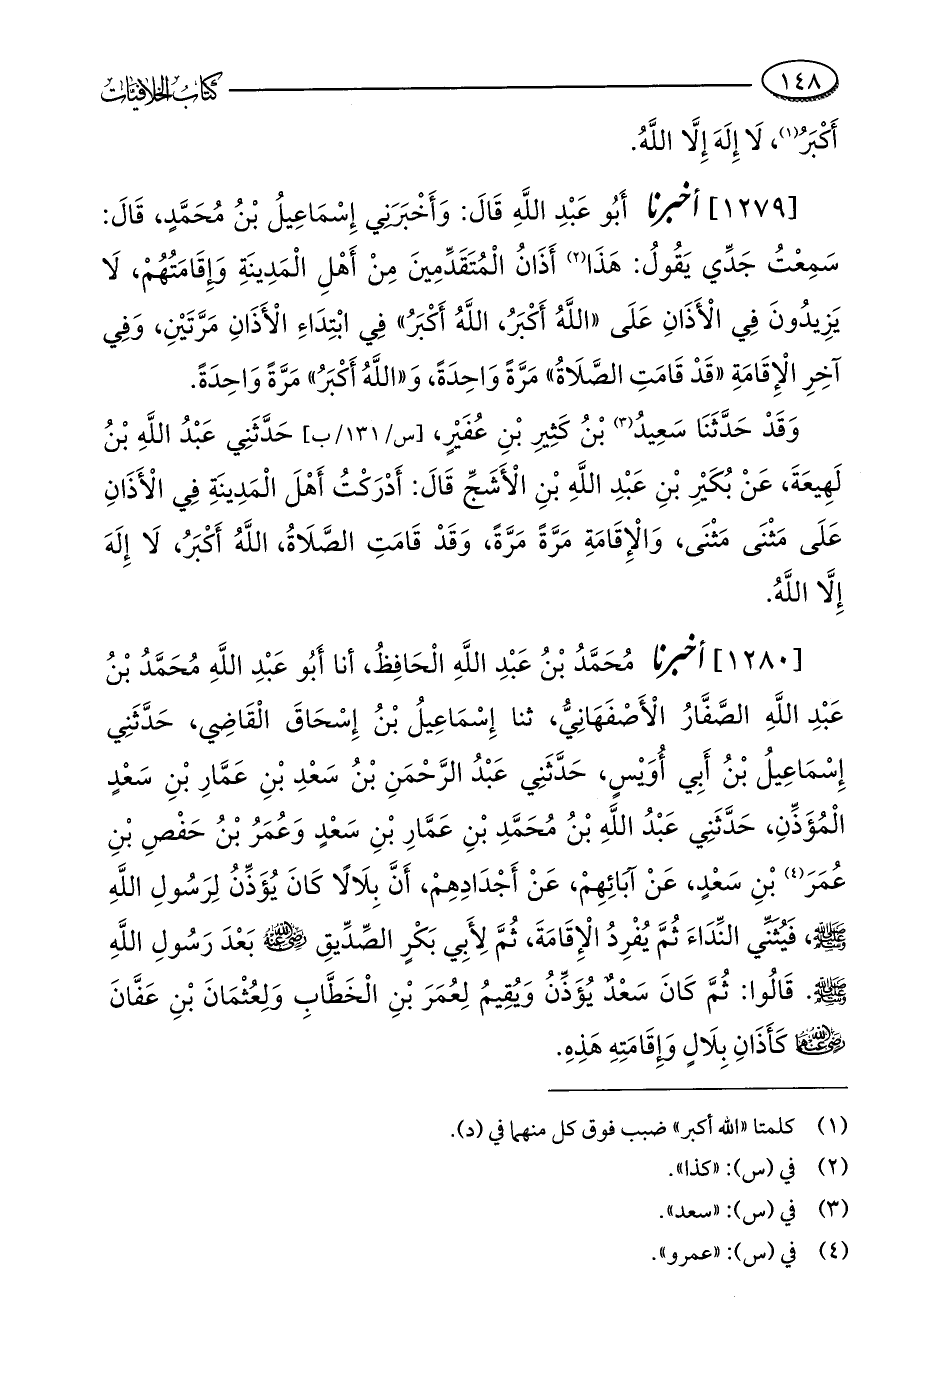 ١٤٨ كتاب الخلافيات
أَكْبَرُ(١)، لَا إِلَهَ إِلَّا اللَّهُ.
[١٢٧٩] أخبرنا أَبُو عَبْدِ اللَّهِ قَالَ: وَأَخْبَرَنِي إِسْمَاعِيلُ بْنُ مُحَمَّدٍ، قَالَ:
سَمِعْتُ جَدِّي يَقُولُ: هَذَا(٢) أَذَانُ الْمُتَقَدِّمِينَ مِنْ أَهْلِ الْمَدِينَةِ وَإِقَامَتُهُمْ، لَا
يَزِيدُونَ فِي الْأَذَانِ عَلَى «اللَّهُ أَكْبَرُ، اللَّهُ أَكْبَرُ» فِي ابْتِدَاءِ الْأَذَانِ مَرَّتَيْنِ، وَفِي
آخِرِ الْإِقَامَةِ «قَدْ قَامَتِ الصَّلَاةُ» مَرَّةً وَاحِدَةً، وَ«اللَّهُ أَكْبَرُ» مَرَّةً وَاحِدَةً.
وَقَدْ حَدَّثَنَا سَعِيدُ(٣) بْنُ كَثِيرِ بْنِ عُفَيْرٍ، [س/١٣١/ب] حَدَّثَنِي عَبْدُ اللَّهِ بْنُ
لَهِيعَةَ، عَنْ بُكَيْرِ بْنِ عَبْدِ اللَّهِ بْنِ الْأَشَجِّ قَالَ: أَدْرَكْتُ أَهْلَ الْمَدِينَةِ فِي الْأَذَانِ
عَلَى مَثْنَى مَثْنَى، وَالْإِقَامَةِ مَرَّةً مَرَّةً، وَقَدْ قَامَتِ الصَّلَاةُ، اللَّهُ أَكْبَرُ، لَا إِلَهَ
إِلَّا اللَّهُ.
[١٢٨٠] أخبرنا مُحَمَّدُ بْنُ عَبْدِ اللَّهِ الْحَافِظُ، أنا أَبُو عَبْدِ اللَّهِ مُحَمَّدُ بْنُ
عَبْدِ اللَّهِ الصَّفَّارُ الْأَصْفَهَانِيُّ، ثنا إِسْمَاعِيلُ بْنُ إِسْحَاقَ الْقَاضِي، حَدَّثَنِي
إِسْمَاعِيلُ بْنُ أَبِي أُوَيْسٍ، حَدَّثَنِي عَبْدُ الرَّحْمَنِ بْنُ سَعْدِ بْنِ عَمَّارِ بْنِ سَعْدٍ
الْمُؤَذِّنِ، حَدَّثَنِي عَبْدُ اللَّهِ بْنُ مُحَمَّدِ بْنِ عَمَّارِ بْنِ سَعْدٍ وَعُمَرُ بْنُ حَفْصِ بْنِ
عُمَرَ(٤) بْنِ سَعْدٍ، عَنْ آبَائِهِمْ، عَنْ أَجْدَادِهِمْ، أَنَّ بِلَالًا كَانَ يُؤَذِّنُ لِرَسُولِ اللَّهِ
ﷺ، فَيُثَنِّي النِّدَاءَ ثُمَّ يُفْرِدُ الْإِقَامَةَ، ثُمَّ لِأَبِي بَكْرٍ الصِّدِّيقِ رضي الله عنه بَعْدَ رَسُولِ اللَّهِ
ﷺ. قَالُوا: ثُمَّ كَانَ سَعْدٌ يُؤَذِّنُ وَيُقِيمُ لِعُمَرَ بْنِ الْخَطَّابِ وَلِعُثْمَانَ بْنِ عَفَّانَ
رضي الله عنهما كَأَذَانِ بِلَالٍ وَإِقَامَتِهِ هَذِهِ.
(١) كلمتا «الله أكبر» ضبب فوق كل منهما في (د).
(٢) في (س): «كذا».
(٣) في (س): «سعد».
(٤) في (س): «عمرو».